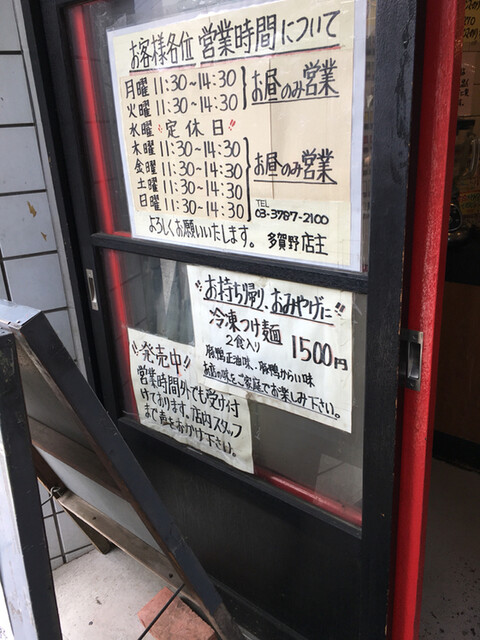 お客様各位 営業時間について
月曜 11:30~14:30
火曜 11:30~14:30
お昼のみ営業
水曜 定休日!!
木曜 11:30~14:30
金曜 11:30~14:30
土曜 11:30~14:30
日曜 11:30~14:30
お昼のみ営業
TEL
03-3787-2100
よろしくお願いいたします。 多賀野店主
お持ち帰り、おみやげに!!
冷凍つけ麺 1500円
2食入り
豚鴨正油味、豚鴨からい味
お店の味をご家庭でお楽しみ下さい。
発売中!!
営業時間外でも受け付
けております。店内スタッフ
まで声をおかけ下さい。